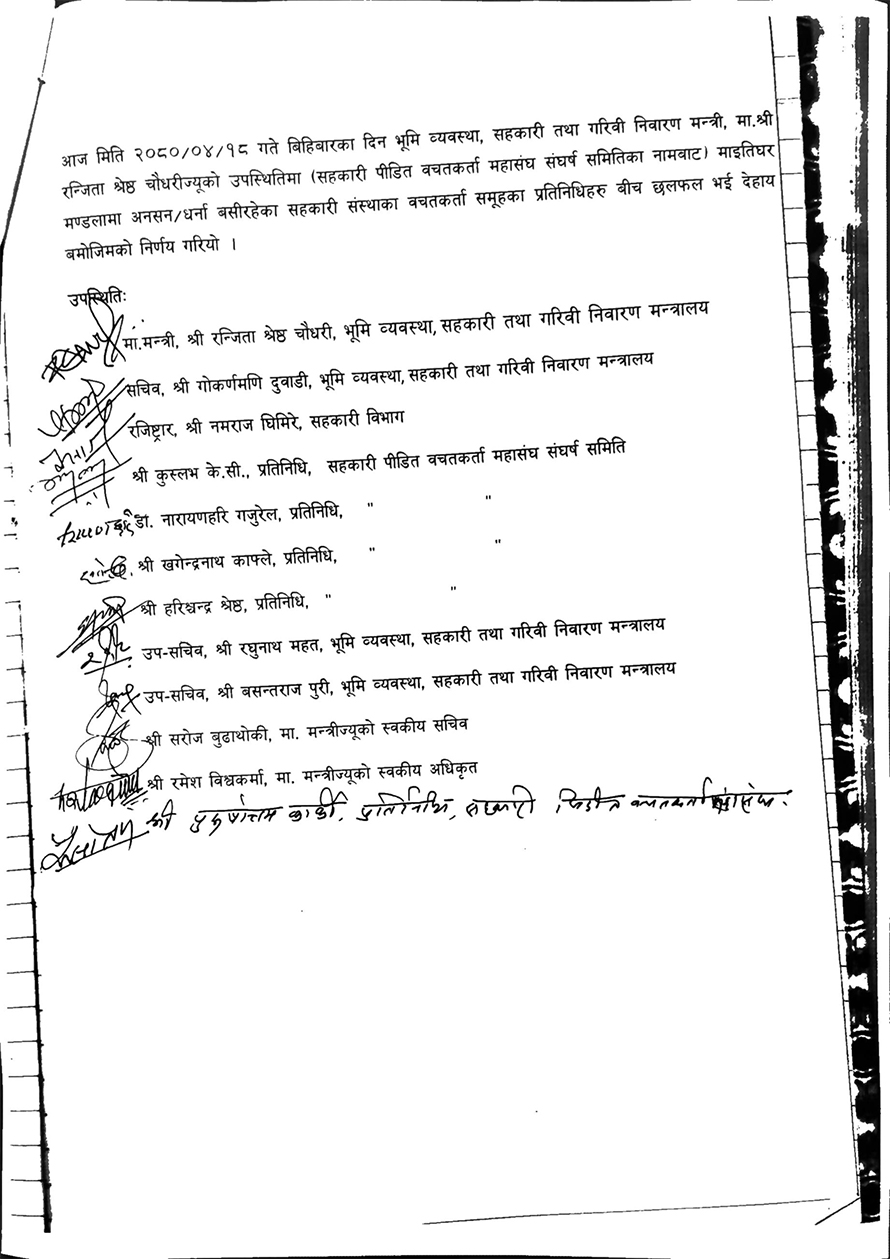 आज मिति २०८०/०४/१८ गते बिहिबारका दिन भूमि व्यवस्था, सहकारी तथा गरिवी निवारण मन्त्री, मा.श्री
रन्जिता श्रेष्ठ चौधरीज्यूको उपस्थितिमा (सहकारी पीडित वचतकर्ता महासंघ संघर्ष समितिका नामबाट) माइतिघर
मण्डलामा अनसन/धर्ना बसीरहेका सहकारी संस्थाका वचतकर्ता समूहका प्रतिनिधिहरु बीच छलफल भई देहाय
बमोजिमको निर्णय गरियो ।
उपस्थितिः
मा.मन्त्री, श्री रन्जिता श्रेष्ठ चौधरी, भूमि व्यवस्था, सहकारी तथा गरिवी निवारण मन्त्रालय
सचिव, श्री गोकर्णमणि दुवाडी, भूमि व्यवस्था, सहकारी तथा गरिवी निवारण मन्त्रालय
रजिष्ट्रार, श्री नमराज घिमिरे, सहकारी विभाग
श्री कुस्लभ के.सी., प्रतिनिधि, सहकारी पीडित वचतकर्ता महासंघ संघर्ष समिति
डा. नारायणहरि गजुरेल, प्रतिनिधि, " "
श्री खगेन्द्रनाथ काफ्ले, प्रतिनिधि, " "
श्री हरिश्चन्द्र श्रेष्ठ, प्रतिनिधि, " "
उप-सचिव, श्री रघुनाथ महत, भूमि व्यवस्था, सहकारी तथा गरिवी निवारण मन्त्रालय
उप-सचिव, श्री बसन्तराज पुरी, भूमि व्यवस्था, सहकारी तथा गरिवी निवारण मन्त्रालय
श्री सरोज बुढाथोकी, मा. मन्त्रीज्यूको स्वकीय सचिव
श्री रमेश विश्वकर्मा, मा. मन्त्रीज्यूको स्वकीय अधिकृत
श्री पुरुषोत्तम कार्की, प्रतिनिधि, सहकारी पिडीत वचतकर्ता महासंघ.